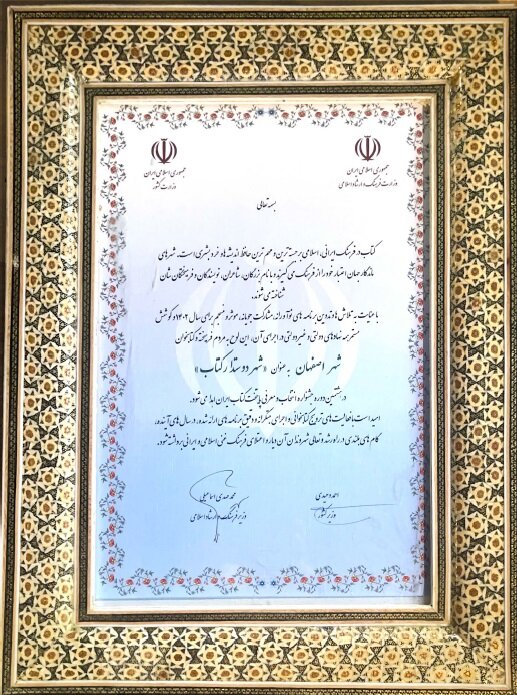 جمهوری اسلامی ایران
وزارت فرهنگ و ارشاد اسلامی
جمهوری اسلامی ایران
وزارت کشور
بسمه تعالی
کتاب در فرهنگ ایرانی، اسلامی برجسته‌ترین و مهم‌ترین حافظ اندیشه‌ها و خرد بشری است. شهرهای
ماندگار جهان اعتبار خود را از فرهنگ می‌گیرند و با نام بزرگان، شاعران، نویسندگان و فرهیختگان‌شان
شناخته می‌شوند.
با عنایت به تلاش‌ها و تدوین برنامه‌های نوآورانه، مشارکت‌جویانه، موثر و منسجم برای سال ۱۴۰۲ و کوشش
نهادهای دولتی و غیردولتی در اجرای آن، این لوح به مردم فرهیخته و کتابخوان
شهر اصفهان به عنوان «شهر دوستدار کتاب»
در هشتمین دوره جشنواره انتخاب و معرفی پایتخت کتاب ایران اهدا می‌شود.
امید است با فعالیت‌های ترویج کتابخوانی و اجرای مبتکرانه و دقیق برنامه‌های ارائه شده، در سال‌های آینده،
گام‌های بلندی در راه رشد و تعالی شهروندان آن دیار و اعتلای فرهنگ غنی اسلامی و ایرانی برداشته شود.
احمد وحیدی
وزیر کشور
محمد مهدی اسماعیلی
وزیر فرهنگ و ارشاد اسلامی